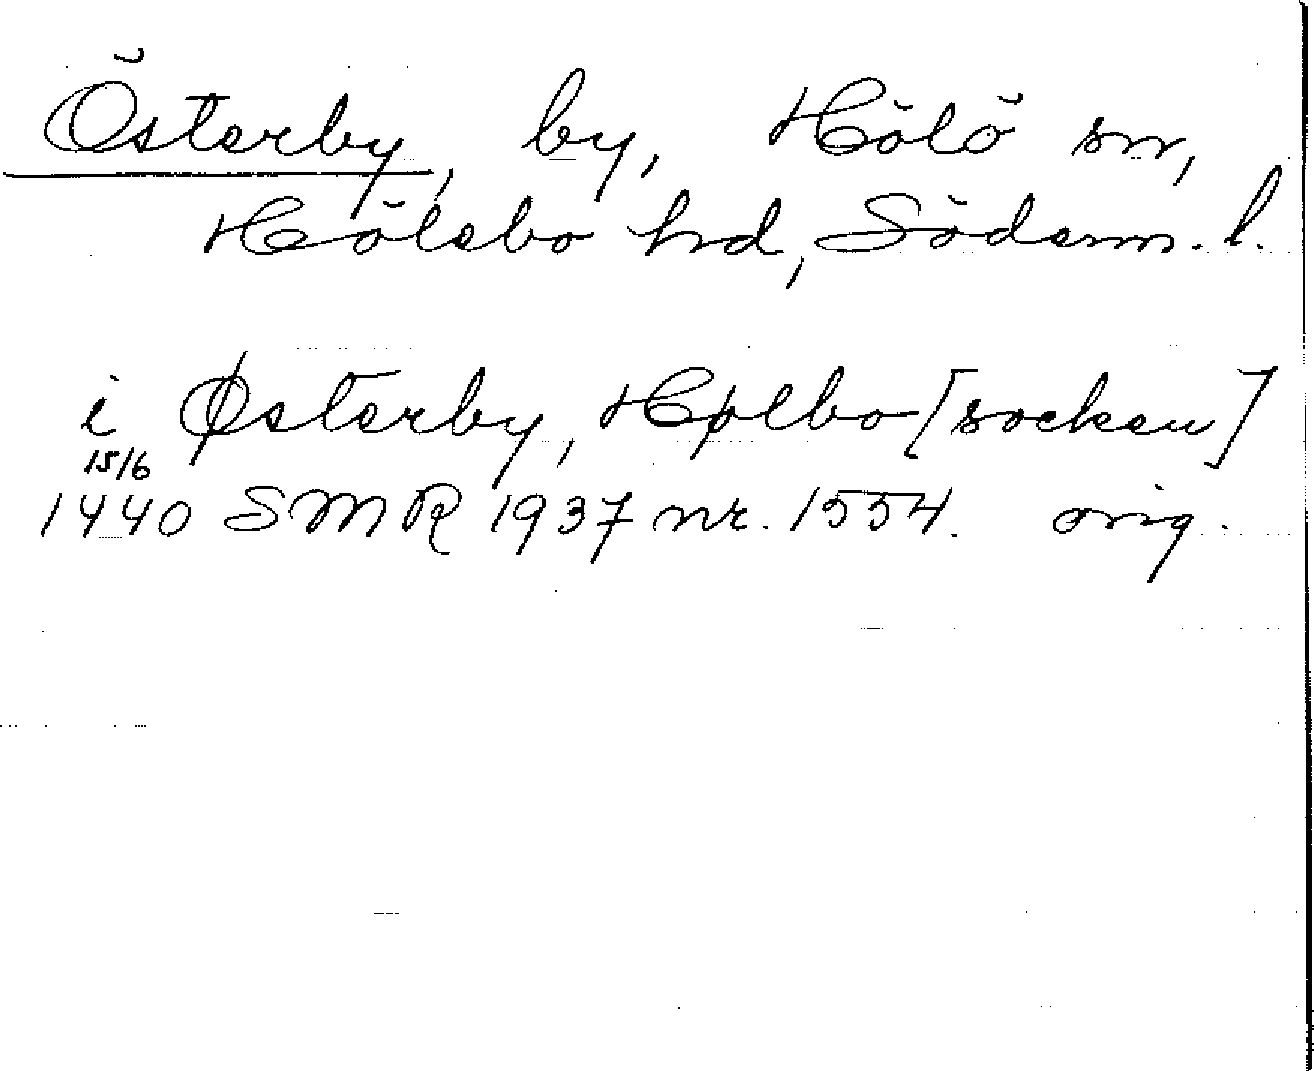 Österby, by, Hölö sn,
Hölebo hd, Söderm. l.
i Østerby, Hølbo [socken]
15/6
1440 SMR 1937 nr. 1554. orig.